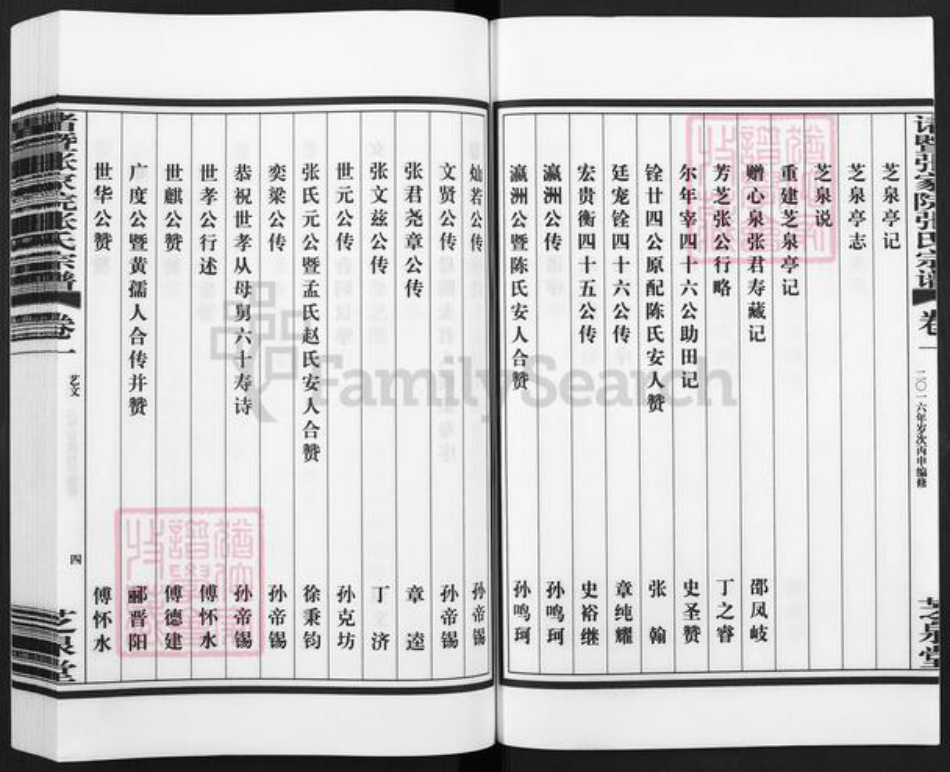 诸暨张家院张氏宗谱 卷一
二〇一六年岁次丙申编修
芝泉堂
芝泉亭记
芝泉亭志
芝泉说
重建芝泉亭记
赠心泉张君寿藏记 邵凤岐
芳芝张公行略 丁之睿
尔年宰四十六公助田记 史圣赞
铨廿四公原配陈氏安人赞 张翰
廷宠铨四十六公传 章纯耀
宏贵衡四十五公传 史裕继
瀛洲公传 孙鸣珂
瀛洲公暨陈氏安人合赞 孙鸣珂
灿若公传 孙帝锡
文贤公传 孙帝锡
张君尧章公传 章逵
张文兹公传 丁文济
世元公传 孙克坊
张氏元公暨孟氏赵氏安人合赞 徐秉钧
奕梁公传 孙帝锡
恭祝世孝从母舅六十寿诗 孙帝锡
世孝公行述 傅怀水
世麒公赞 傅德建
广度公暨黄孺人合传并赞 郦晋阳
世华公赞 傅怀水
诸暨张家院张氏宗谱 卷一
艺文
四
芝泉堂
FamilySearch